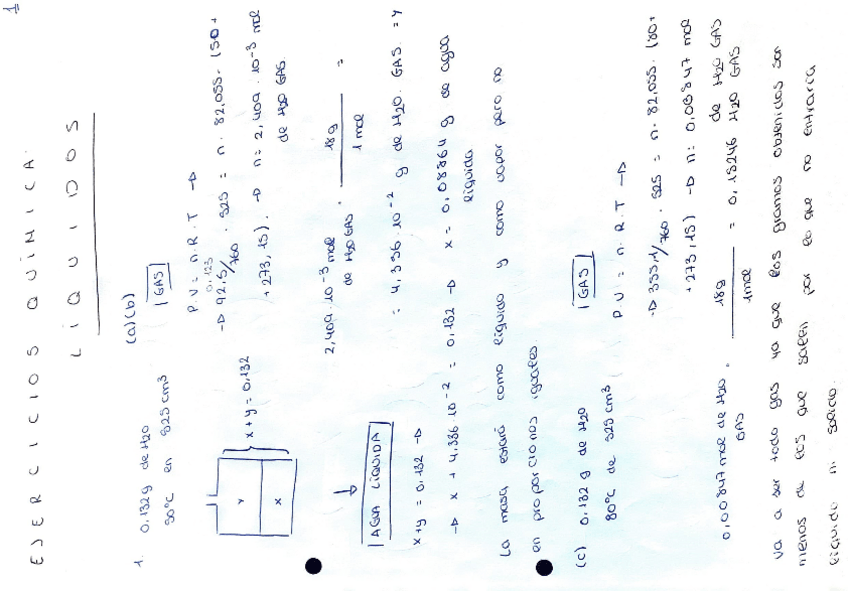 1
EJERCICIOS QUÍMICA.
LÍQUIDOS
1. 0.132g de H2O
50ºC en 525 cm3
(a)(b)
GAS
P.V = n.R.T →
0.123
→ 92.5/760 . 525 = n. 82,055. (50+
+273,15). → n= 2,409.10-3 mol
de H2O GAS.
Y
X
x+y = 0.132
2,409.10-3 mol
de H2O GAS . 18g / 1 mol =
= 4,336.10-2 g de H2O. GAS. = Y
AGUA LÍQUIDA
x+y = 0.132 →
→ x + 4.336.10-2 = 0.132 → x = 0,08864 g de agua
líquida
La masa estará como líquido y como vapor pero no
en proporciones iguales.
(c) 0.132 g de H2O
80ºC de 525 cm3
GAS
P.V = n.R.T →
→ 355.1/760 . 525 = n. 82,055. (80+
+273,15) → n= 0,00847 mol
de H2O GAS
0,00847 mol de H2O GAS . 18g / 1mol = 0,15246 H2O GAS
va a ser todo gas ya que los gramos obtenidos son
menos de los que salen por lo que no entraría
líquido ni sólido.